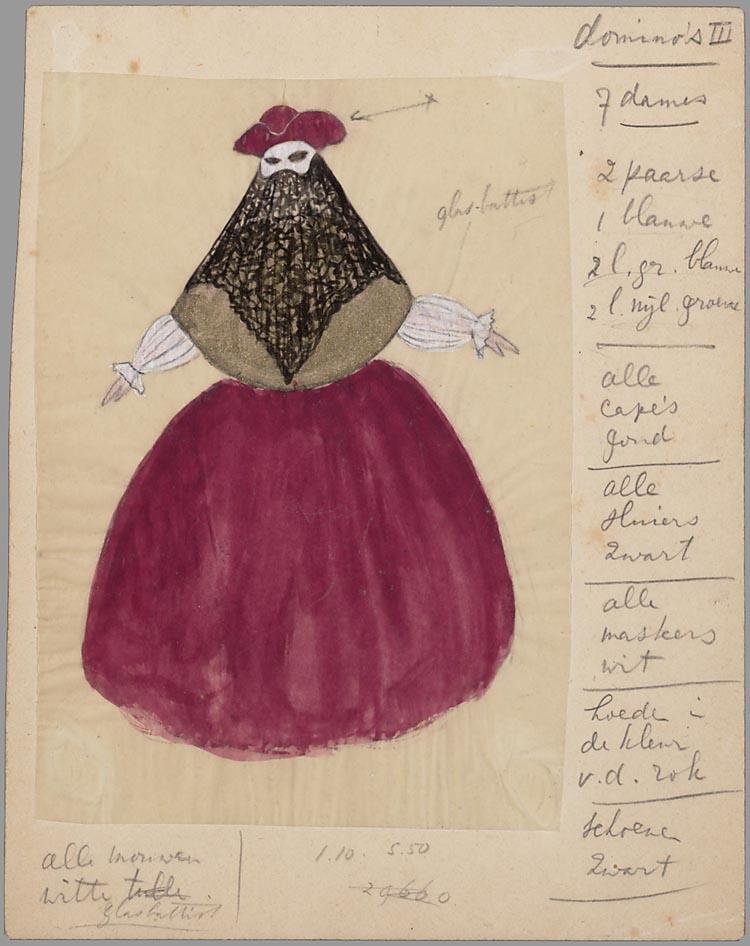 domino's III
7 dames
2 paarse
1 blauwe
2 l. gr. blauw
2 l. nijl. groene
alle
cape's
goud
alle
sluiers
zwart
alle
maskers
wit
hoeden i
de kleur
v.d. rok
schoenen
zwart
glas-battist
alle mouwen
witte tulle.
glasbattist
1.10. 5.50